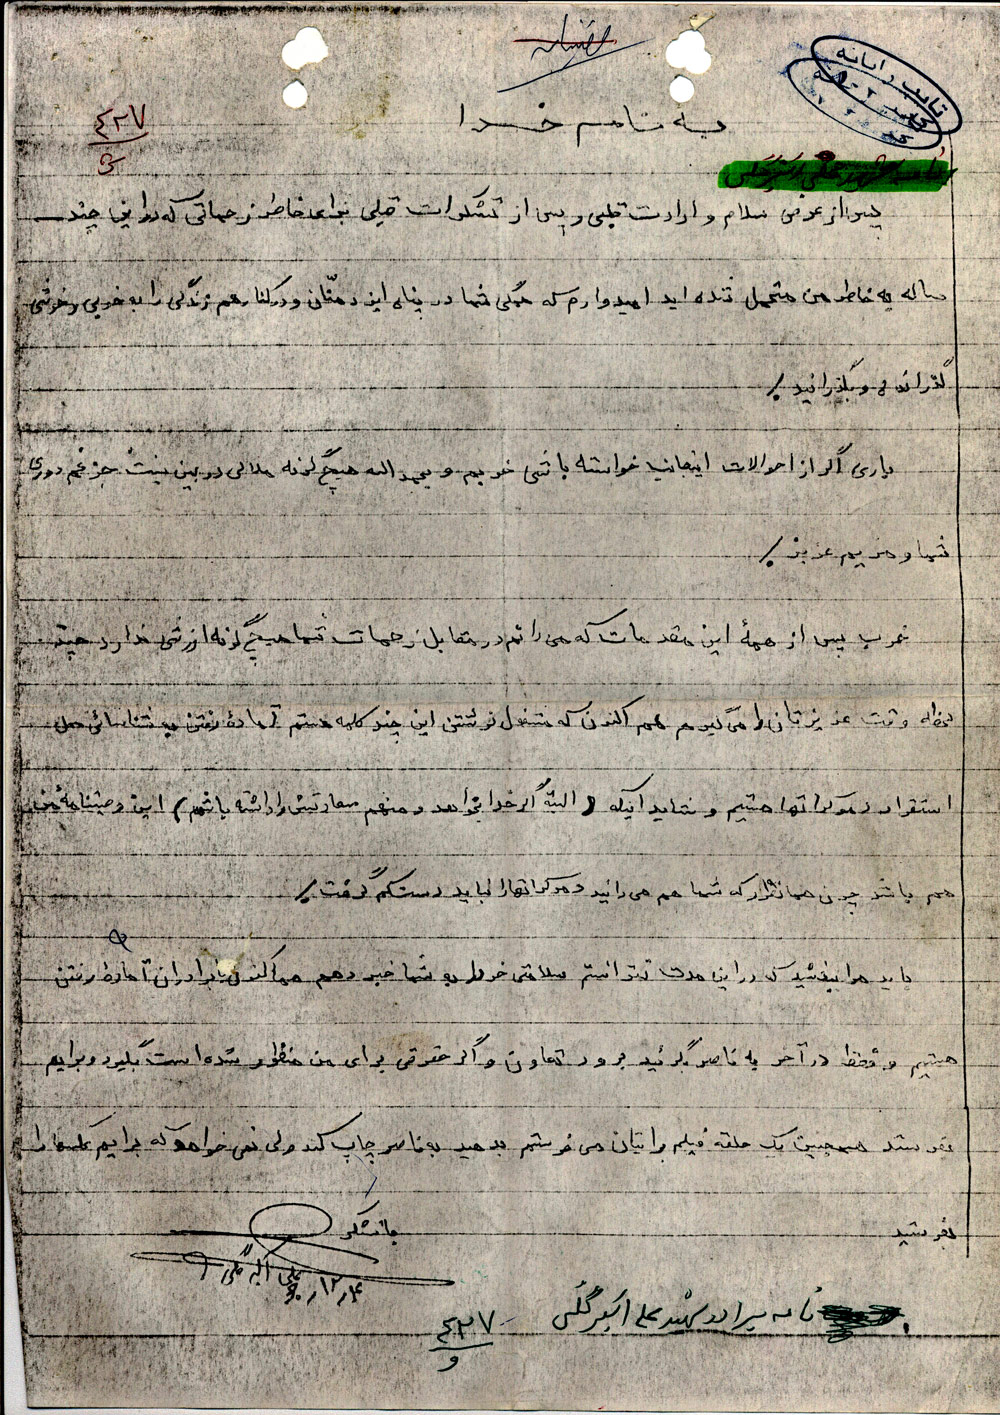 به نام خدا
۴۲۷
ش
پس از عرض سلام و ارادت قلبی و پس از تشکرات قبلی بخاطر زحماتی که در این چند
ساله به خاطر من متحمل شده اید امیدوارم که همگی شما در پناه ایزد منّان و در کنار هم زندگی را به خوبی و خوشی
گذرانده و بگذرانید /
باری اگر از احوالات اینجانب خواسته باشی خوبم و بحمد الله هیچ گونه ملالی در بین نیست جز غم دوری
شما و مریم عزیز /
خوب پس از همهٔ این مقدمات که می دانم در مقابل زحمات شما هیچ گونه ارزشی ندارد چند
لحظه وقت عزیزتان را می گیرم هم اکنون که مشغول نوشتن این چند کلمه هستم آمادهٔ رفتن به شناسائی محل
استقرار دمکراتها هستیم و شاید اینکه (البته اگر خدا بخواهد و منهم سعادتش را داشته باشم) این وصیتنامهٔ من
هم باشد چون همانطور که شما هم می دانید دمکراتها را نباید دست کم گرفت /
باید مرا ببخشید که در این مدت نتوانستم سلامتی خود را به شما خبر دهم هم اکنون با برادران آمادهٔ رفتن
هستیم و فقط در آخر به ناصر بگوئید برود تعاون و اگر حقوقی برای من منظور شده است بگیرد و برایم
بفرستد همچنین یک حلقه فیلم برایتان می فرستم بدهید به ناصر چاپ کند ولی نمی خواهد که برایم عکسها را
بفرستید
با تشکر
علی اکبر گلی
۶۰/۱۲/۴
نامه برادر شهید علی اکبر گلی
۴۲۷
و